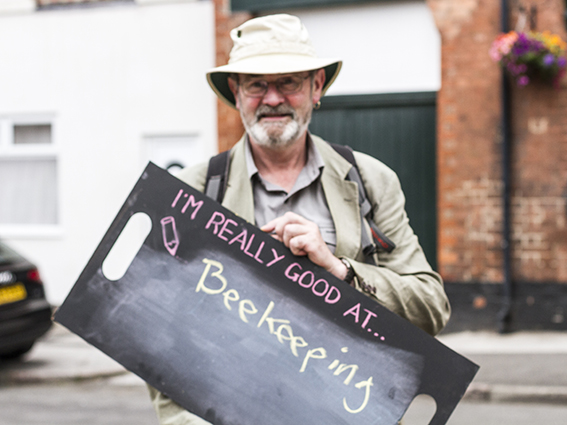 I'M REALLY GOOD AT...
Beekeeping